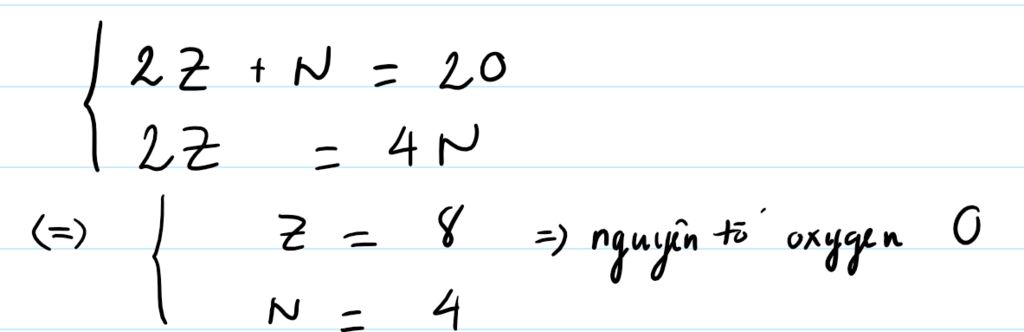 2Z + N = 20
2Z = 4N
(=) Z = 8 => nguyên tố oxygen O
N = 4